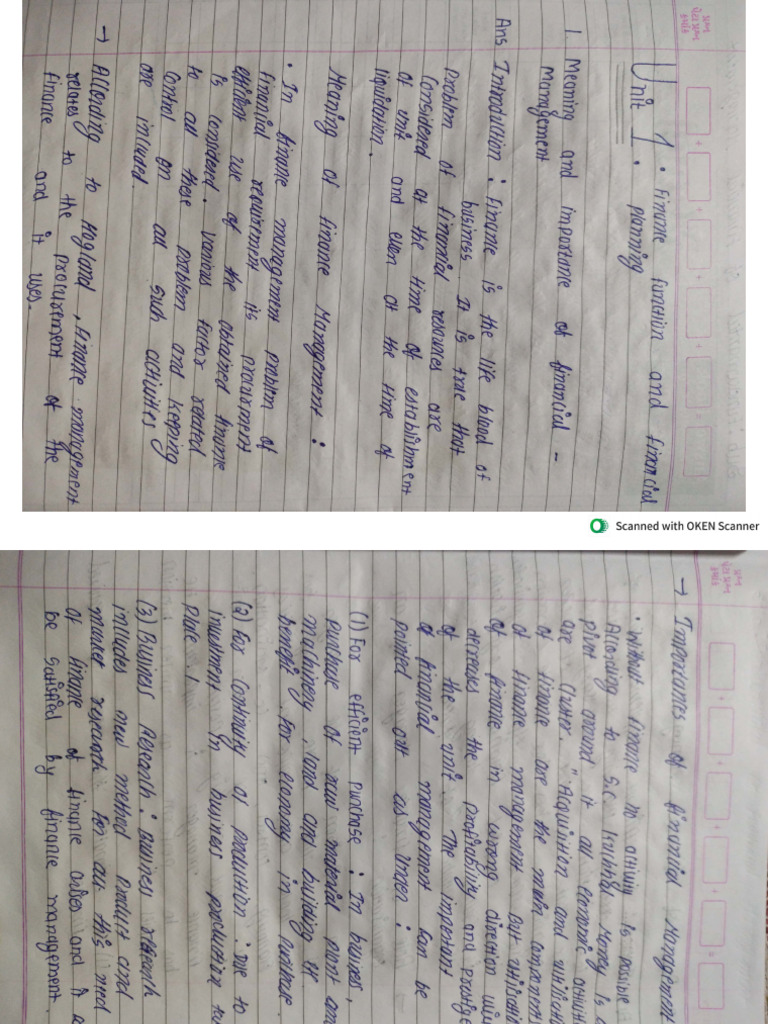 Unit 1. Finance function and financial
planning
1. Meaning and importance of financial -
Management
Ans Introduction : Finance is the life blood of
business. It is true that
problem of financial resources are
Considered at the time of establishment
of unit and even at the time of
liquidation.
Meaning of finance Management :
• In finance management problem of
financial requirement is procurment
efficient use of the obtained finance
is considered. Various factor related
to all these problem and keeping
Control on all such activities
are included.
→ According to Hogland, finance management
relates to the procurement of the
finance and it uses.
Scanned with OKEN Scanner
→ Importances of financial Management
• without finance no activity is possible
According to S.C. Money is
pivot around it all Economic
are Cluster. "Acquisition and
of finance are the main
of finance management but
of finance in wrong direction
decreases the profitability and
of the unit. The important
of financial management can be
pointed out as under :
(1) For efficient purchase : In business,
purchase of raw material plant
machinery, land and building
benefit. For economy in purchase.
(2) For continuity of production : Due to
investment in business production
place.
(3) Business Research : Business research
includes new method product and
market research. For all this need
of finance of finance arises and it
be satisfied by finance management.